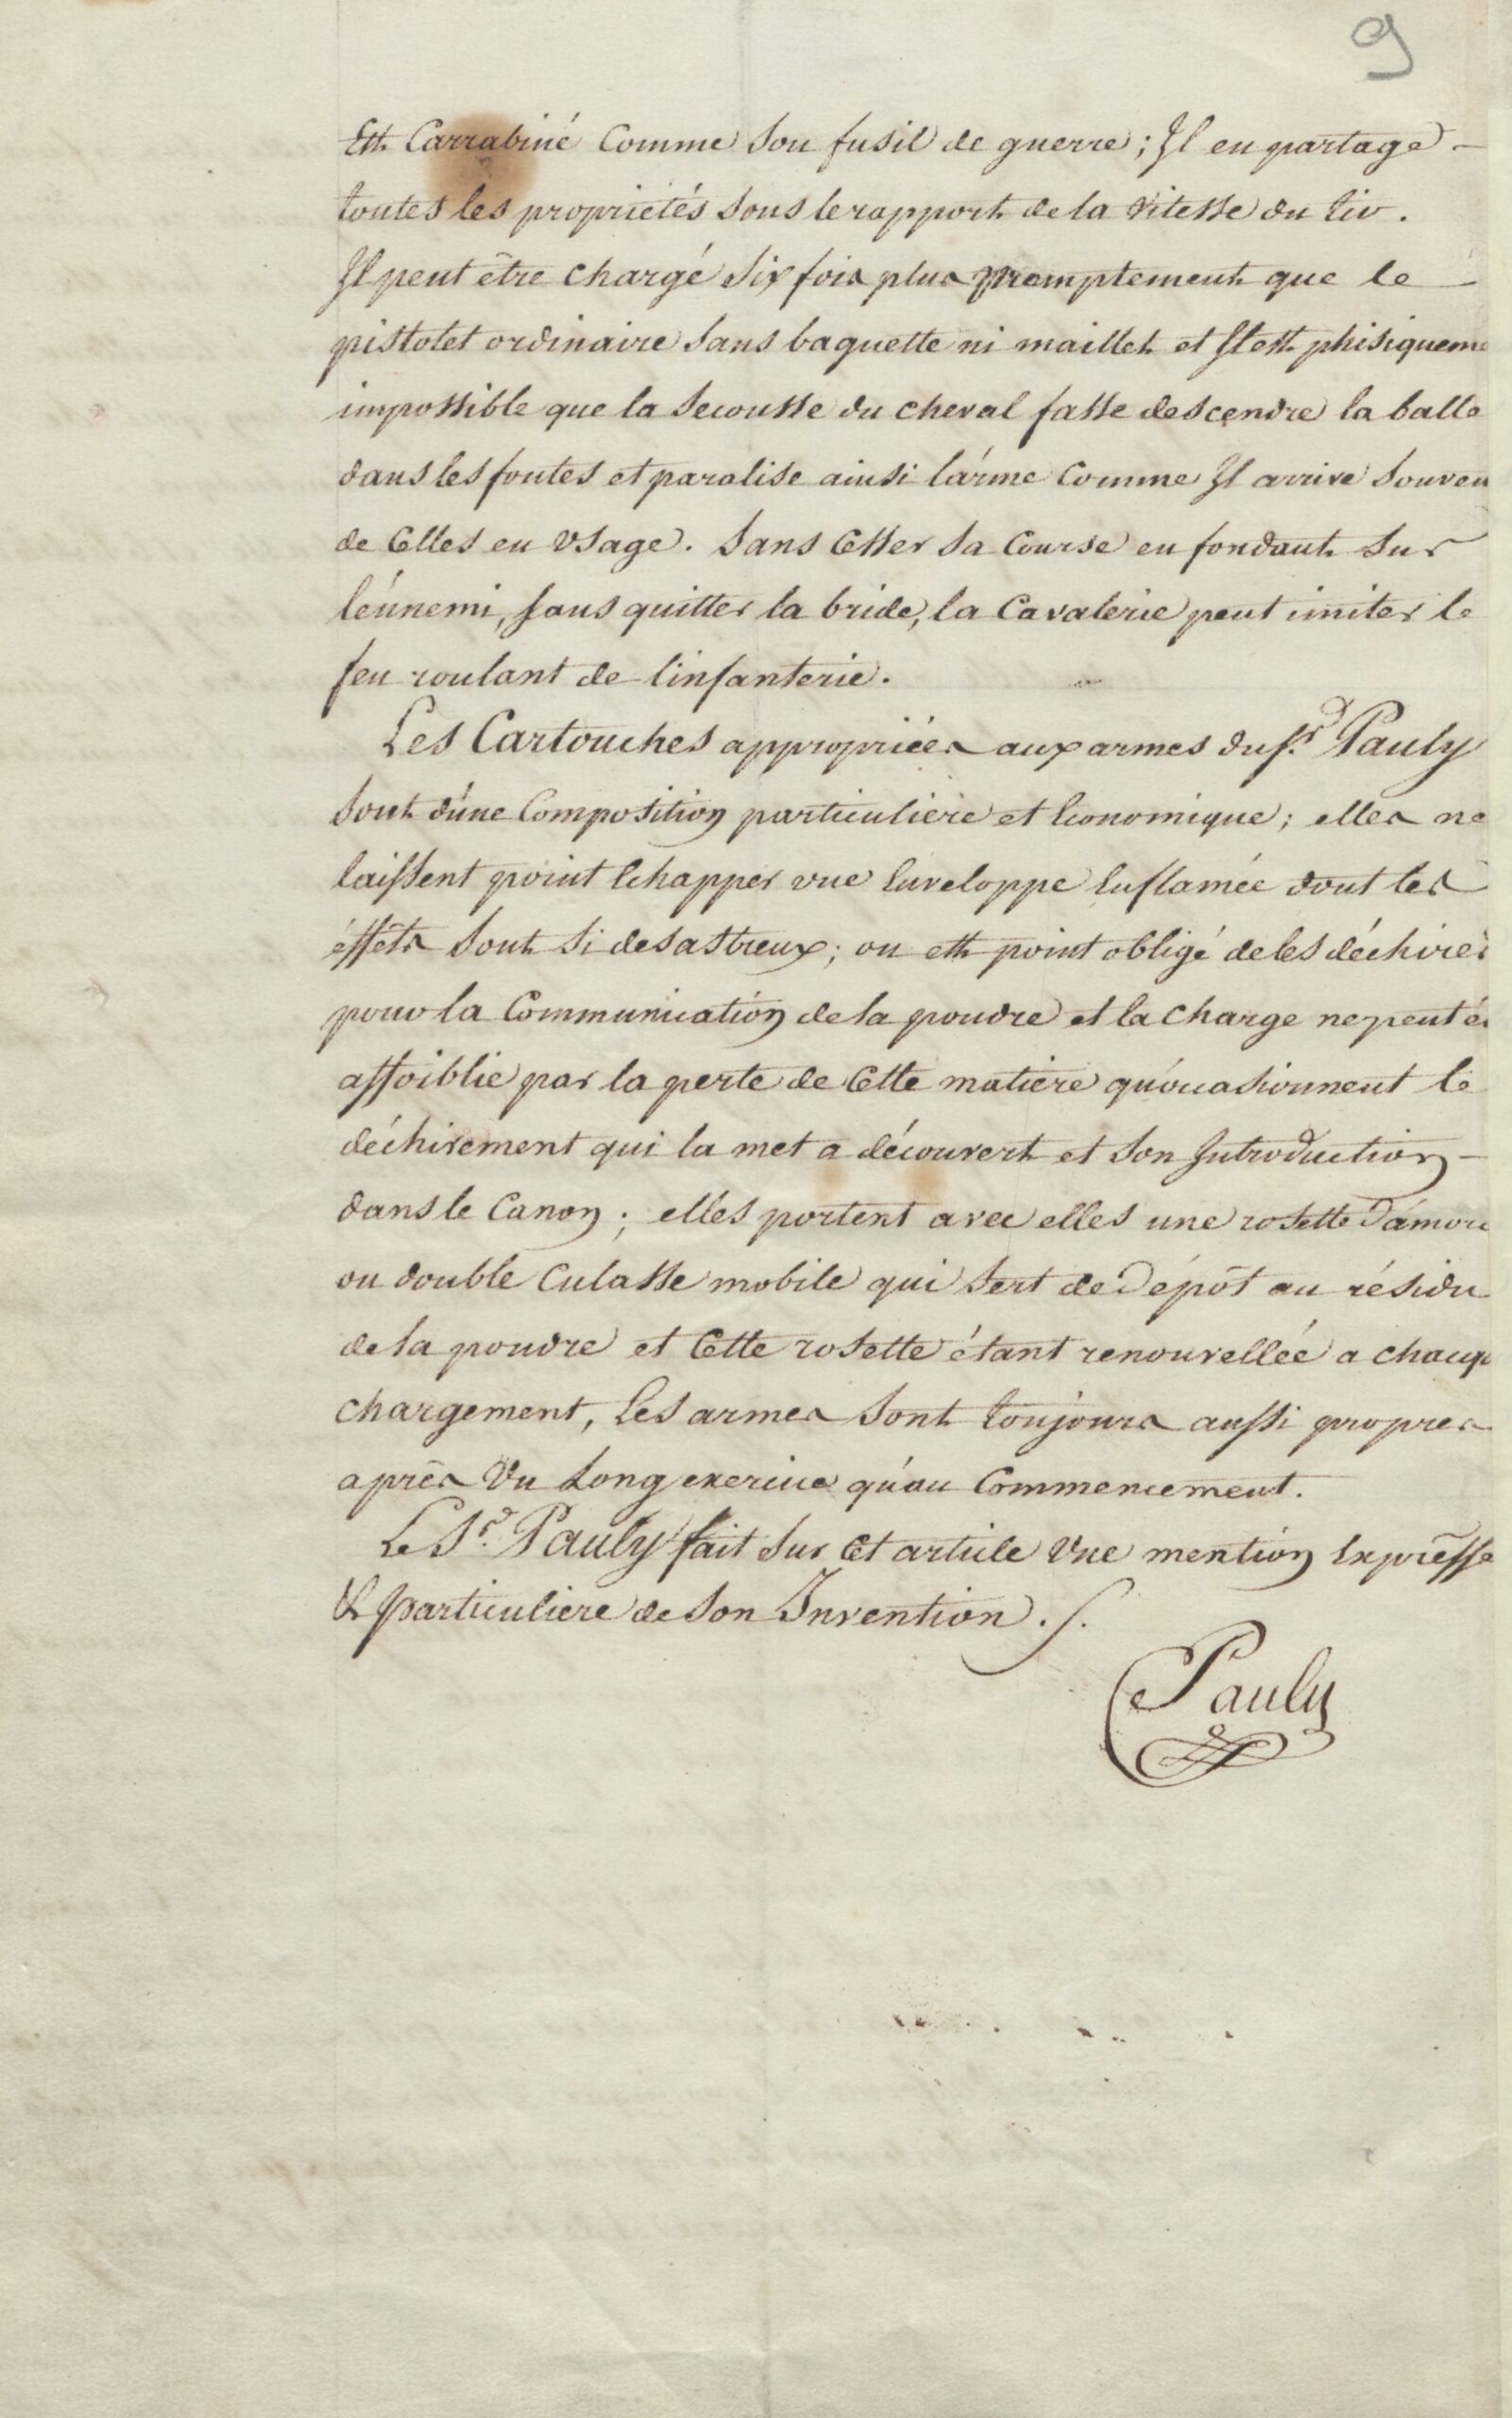 9
Est Carrabiné Comme Son fusil de guerre; Il en partage -
toutes les propriétés Sous le rapport de la Vitesse du tir.
Il peut être chargé Six fois plus promptement que le -
pistolet ordinaire Sans baguette ni maillet et Il est phisiqueme
impossible que la Secousse du cheval fasse descendre la balle
dans les fontes et paralise ainsi l'arme Comme Il arrive Souven
de Celles en Usage. Sans Cesser Sa Course en fondant Sur
l'énnemi, Sans quitter la bride, la Cavalerie peut imiter le
feu roulant de l'infanterie.
Les Cartouches appropriées aux armes du S.r Pauly
Sont d'une Composition particulière et Economique; elles ne
laissent point Echapper une Enveloppe Enflamée dont les
éffêts Sont Si desastreux; on est point obligé de les déchirer
pour la Communication de la poudre et la charge ne peut ê
affoiblie par la perte de Cette matiere qu'occasionnent le
déchirement qui la met a découvert et Son Introduction -
dans le Canon; elles portent avec elles une rosette d'amorc
ou double Culasse mobile qui Sert de Dépôt au résidu
de la poudre et Cette rosette étant renouvellée a chaqu
chargement, Les armes Sont toujours aussi propres
après Un Long exercice qu'au Commencement.
Le S.r Pauly fait Sur Cet article Une mention Expresse
& particuliere de Son Invention ./.
Pauly